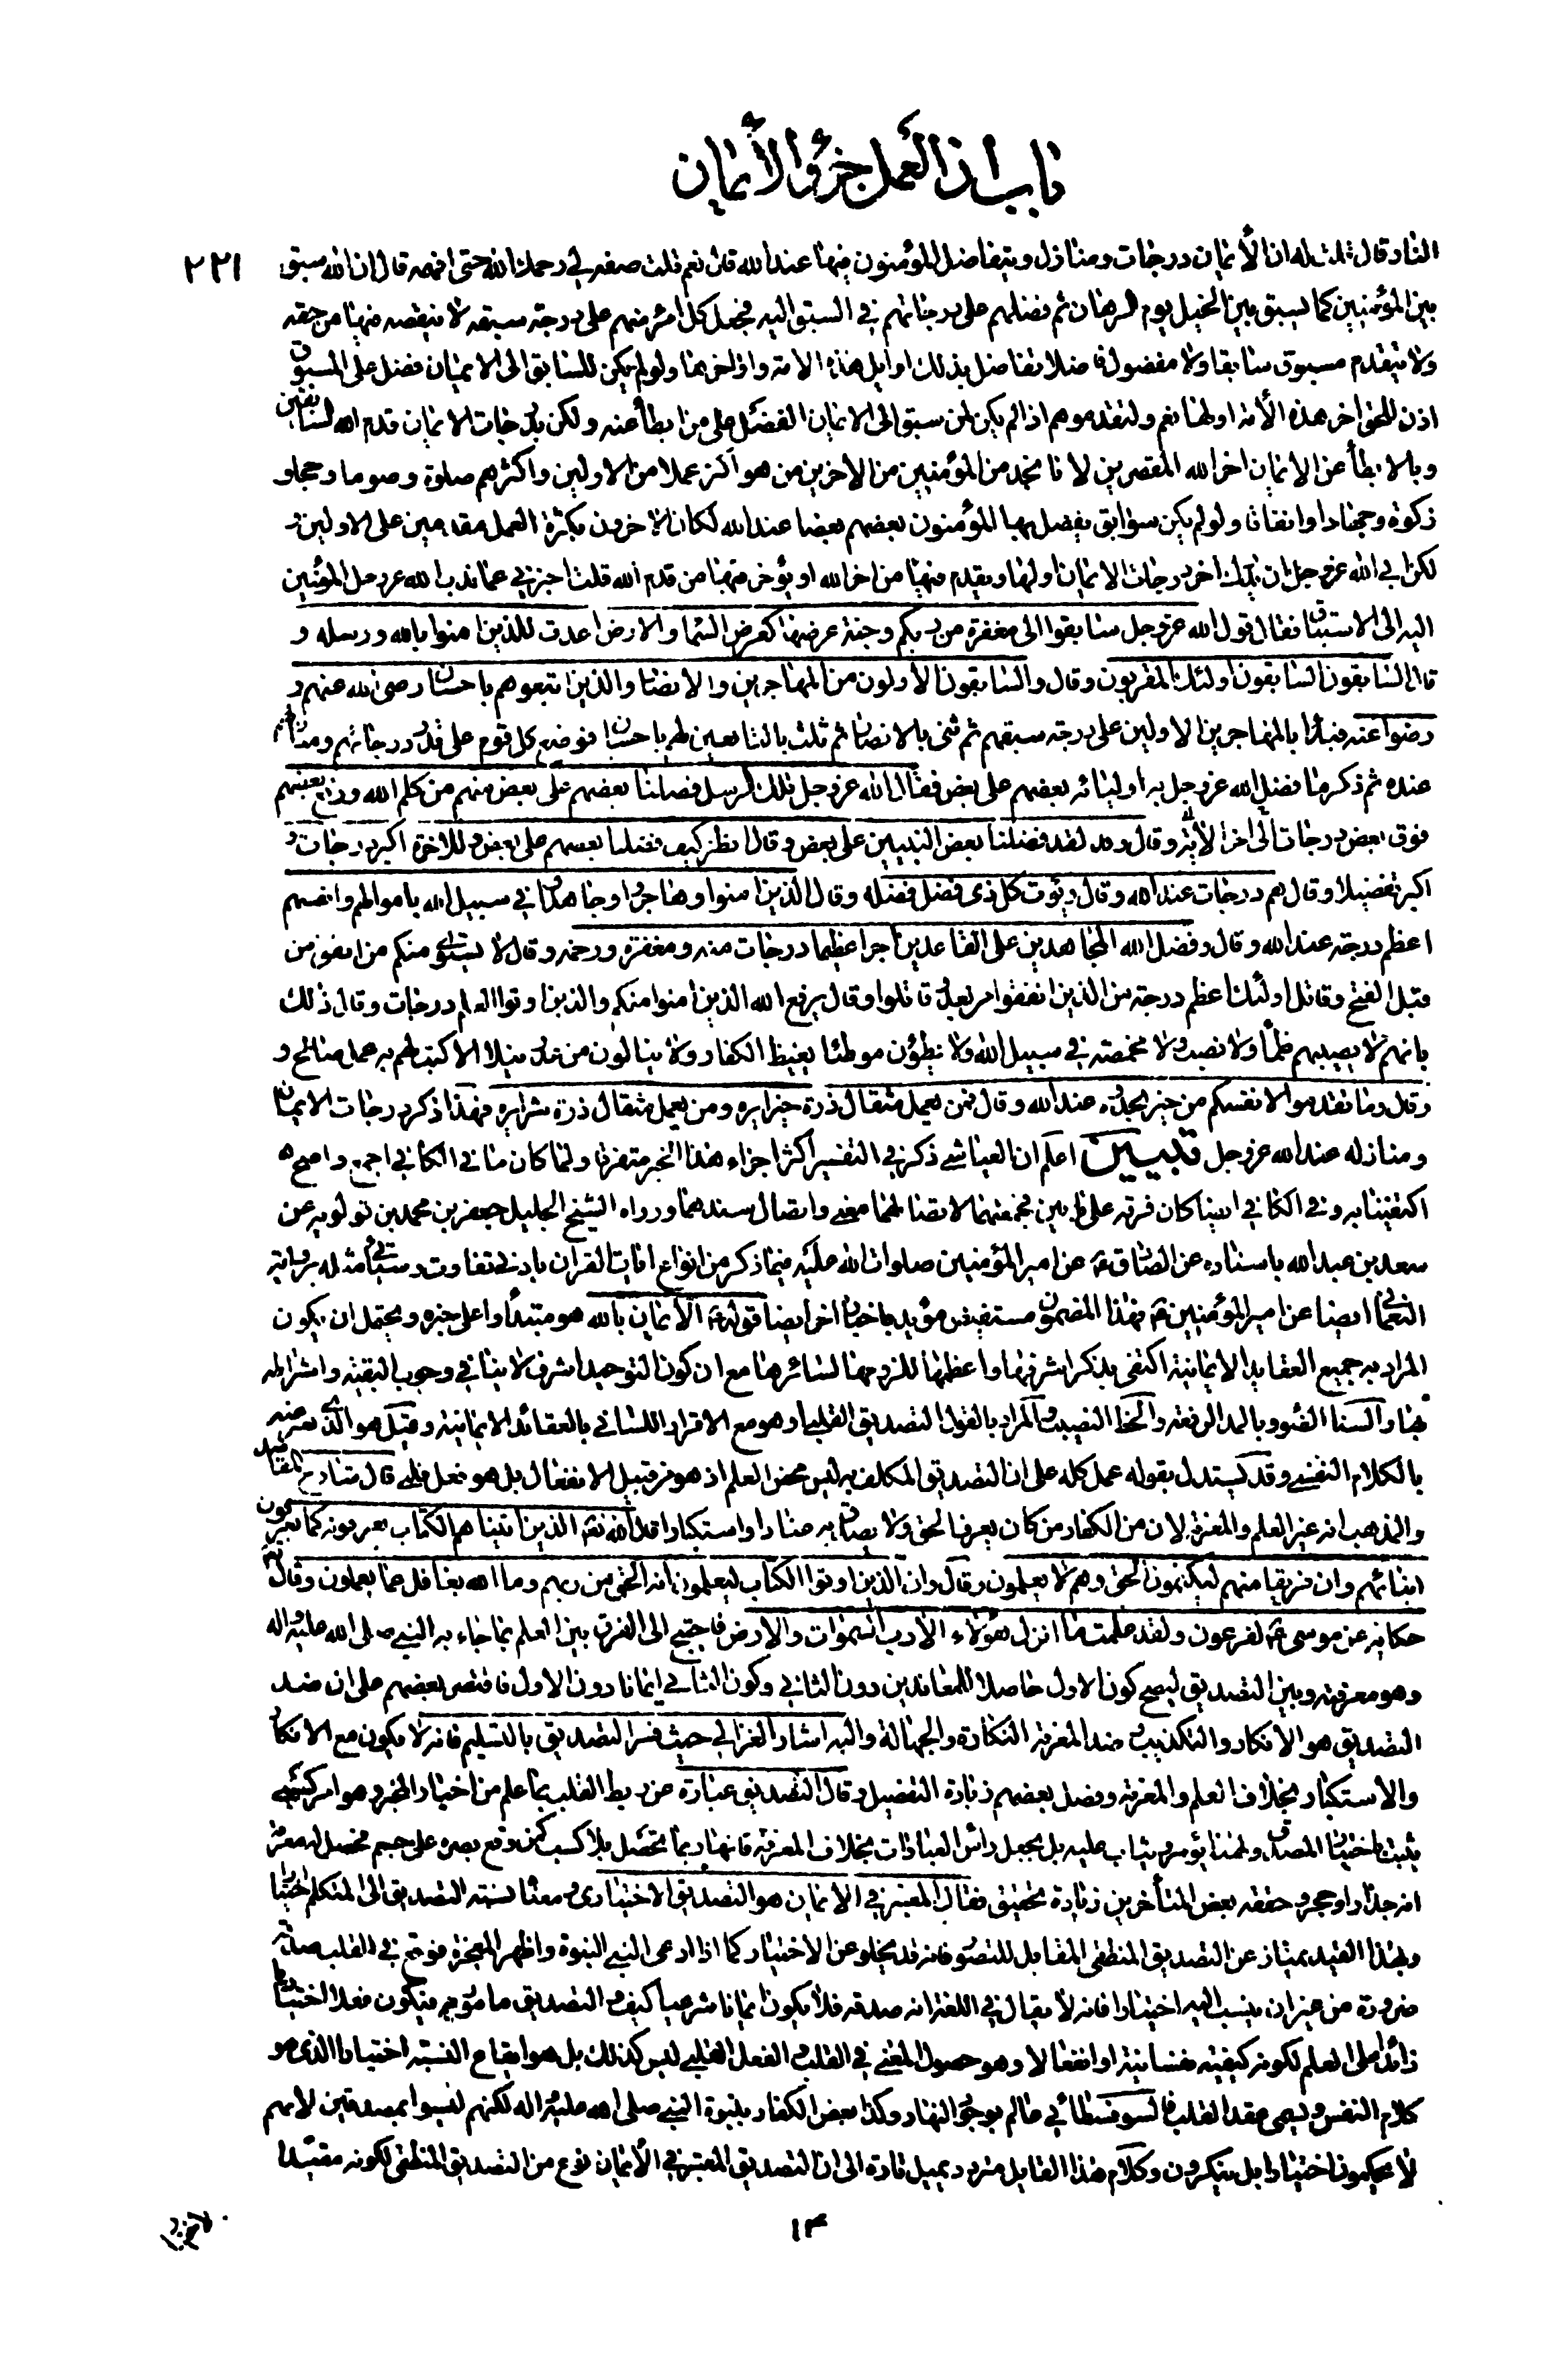 باب ان العمل جزؤ الأيمان
٢٢١
النار وقال قلت له ان الأيمان درجات ومنازل ويتفاضل المؤمنون فيها عند الله قال نعم قلت صفه لي رحمك الله حتى افهمه قال ان الله سبق
بين المؤمنين كما يسبق بين الخيل يوم الرهان ثم فضلهم على درجاتهم في السبق اليه فجعل كل امرئ منهم على درجة سبقه لا ينقصه فيها من حقه
ولا يتقدم مسبوق سابقا ولا مفضول فاضلا تفاضل بذلك اوايل هذه الامة واواخرها ولو لم يكن للسابق الى الايمان فضل على المسبوق
اذن للحق اخر هذه الأمة اولها نعم ولتقدموهم اذا لم يكن لمن سبق الى الايمان الفضل على من ابطأ عنه ولكن بدرجات الايمان قدم الله السابقين
وبالابطأ عن الايمان اخر الله المقصرين لانا نجد من المؤمنين من الاخرين من هو اكثر عملا من الاولين واكثرهم صلوة وصوما وحجا و
زكوة وجهادا وانفاقا ولو لم يكن سوابق يفضل بها المؤمنون بعضهم بعضا عند الله لكان الاخرون بكثرة العمل مقدمين على الاولين و
لكن ابى الله عز وجل ان يدرك اخر درجات الايمان اولها ويقدم فيها من اخر الله او يؤخر فيها من قدم الله قلت اخبرني عما ندب الله عز وجل المؤمنين
اليه الى الاستباق فقال قول الله عز وجل سابقوا الى مغفرة من ربكم وجنة عرضها كعرض السما والارض اعدت للذين امنوا بالله ورسله و
قال السابقون السابقون اولئك المقربون وقال والسابقون الاولون من المهاجرين والانصار والذين اتبعوهم باحسان رضي الله عنهم و
رضوا عنه فبدأ بالمهاجرين الاولين على درجة سبقهم ثم ثنى بالانصار ثم ثلث بالتابعين لهم باحسان فوضع كل قوم على قدر درجاتهم ومنازلهم
عنده ثم ذكر ما فضل الله عز وجل به اوليائه بعضهم على بعض فقال الله عز وجل تلك الرسل فضلنا بعضهم على بعض منهم من كلم الله ورفع بعضهم
فوق بعض درجات الى اخر الأية وقال ولقد فضلنا بعض النبيين على بعض وقال انظر كيف فضلنا بعضهم على بعض وللاخرة اكبر درجات و
اكبر تفضيلا وقال هم درجات عند الله وقال ويؤت كل ذي فضل فضله وقال الذين امنوا وهاجروا وجاهدوا في سبيل الله باموالهم وانفسهم
اعظم درجة عند الله وقال وفضل الله المجاهدين على القاعدين اجرا عظيما درجات منه ومغفرة ورحمة وقال لا يستوي منكم من انفق من
قبل الفتح وقاتل اولئك اعظم درجة من الذين انفقوا من بعد وقاتلوا وقال يرفع الله الذين امنوا منكم والذين اوتوا العلم درجات وقال ذلك
بانهم لا يصيبهم ظمأ ولا نصب ولا مخمصة في سبيل الله ولا يطؤن موطئا يغيظ الكفار ولا ينالون من عدو نيلا الا كتب لهم به عمل صالح و
وقال وما تقدموا لانفسكم من خير تجدوه عند الله وقال فمن يعمل مثقال ذرة خيرا يره ومن يعمل مثقال ذرة شرا يره فهذا ذكر درجات الايمان
ومنازله عند الله عز وجل تبيين اعلم ان العياشي ذكر في التفسير اكثر اجزاء هذا الخبر متفرقا ولما كان ما في الكافي اجمع واصح
اكتفينا به وفي الكافي ايضا كان فرقه على بابين فجمعتهما لاتصالهما معنى واتصال سندهما ورواه الشيخ الجليل جعفر بن محمد بن قولويه عن
سعد بن عبد الله باسناده عن الصادق ع عن امير المؤمنين صلوات الله عليه فيما ذكر من انواع ايات القران بادنى تفاوت وسيأتي مثله برواية
النعماني ايضا عن امير المؤمنين ع فهذا المضمون مستفيض مؤيد باخبار اخر ايضا قوله ع الأيمان بالله هو مبتدأ واعلى خبره ويحتمل ان يكون
المراد به جميع العقايد الايمانية اكتفى بذكر اشرفها واعظمها للزومها لسائرها مع ان كون التوحيد اشرف لا ينافي وجوب البقية واشتراطه
بها والسنا الضوء وبالمد الرفعة والحظ النصيب والمراد بالقول التصديق القلبي او هو مع الاقرار اللساني بالعقائد الايمانية وقيل هو الذي يعبر عنه
بالكلام النفسي وقد يستدل بقوله عمل كله على ان التصديق المكلف به ليس محض العلم اذ هو من قبيل الانفعال بل هو فعل قلبي قال شارح المقاصد
والمذهب انه غير العلم والمعرفة لان من الكفار من كان يعرف الحق ولا يصدق به عنادا واستكبارا قال الله تعالى الذين اتيناهم الكتاب يعرفونه كما يعرفون
ابنائهم وان فريقا منهم ليكتمون الحق وهم لا يعلمون وقال وان الذين اوتوا الكتاب ليعلمون انه الحق من ربهم وما الله بغافل عما يعملون وقال
حكاية عن موسى ع لفرعون ولقد علمت ما انزل هؤلاء الا رب السموات والارض فاحتيج الى الفرق بين العلم بما جاء به النبي صلى الله عليه واله
وهو معرفته وبين التصديق ليصح كون الاول حاصلا للمعاندين دون الثاني وكون الثاني ايمانا دون الاول فاقتصر بعضهم على ان ضد
التصديق هو الانكار والتكذيب وضد المعرفة النكارة والجهالة واليه اشار الغزالي حيث فسر التصديق بالتسليم فانه لا يكون مع الانكار
والاستكبار بخلاف العلم والمعرفة وفصل بعضهم زيادة التفصيل وقال التصديق عبارة عن ربط القلب بما علم من اخبار المخبر وهو امر كسبي
يثبت باختيار المصدق ولهذا يؤمر ويثاب عليه بل يجعل رأس العبادات بخلاف المعرفة فانها ربما تحصل بلا كسب كمن وقع بصره على جسم فحصل له معرفة
انه جدار او حجر وحققه بعض المتأخرين زيادة تحقيق فقال المعتبر في الايمان هو التصديق الاختياري ومعناه نسبة التصديق الى المتكلم اختيارا
وبهذا القيد يمتاز عن التصديق المنطقي المقابل للتصور فانه قد يخلو عن الاختيار كما اذا ادعى النبي النبوة واظهر المعجزة فوقع في القلب صدقه
ضرورة من غير ان ينسب اليه اختيارا فانه لا يقال في اللغة انه صدقه فلا يكون ايمانا شرعيا كيف والتصديق مامور به فيكون فعلا اختياريا
زائدا على العلم لكونه كيفية نفسانية او انفعالا وهو حصول المعنى في القلب والفعل القلبي ليس كذلك بل هو ايقاع النسبة اختيارا الذي هو
كلام النفس ويسمى عقد القلب فالسوفسطائي عالم بوجود النهار وكذا بعض الكفار بنبوة النبي صلى الله عليه واله لكنهم ليسوا بمصدقين لانهم
لا يحكمون اختيارا بل ينكرون وكلام هذا القايل متردد يميل تارة الى ان التصديق المعتبر في الأيمان نوع من التصديق المنطقي لكونه مقيدا
١٤